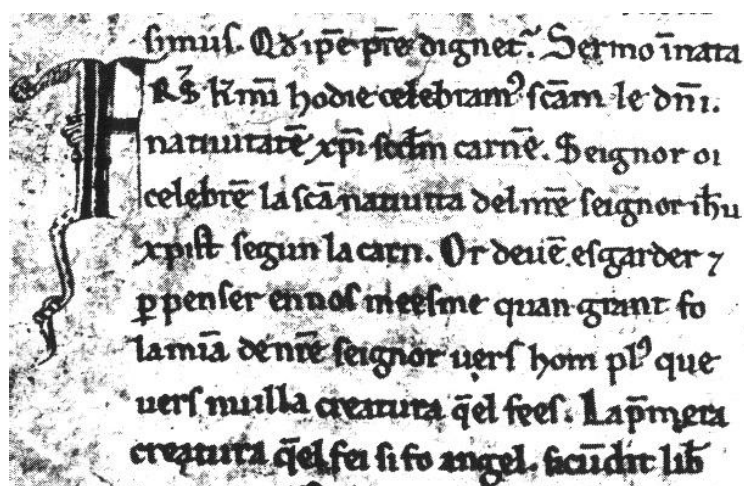 simus. Qđ ip̄e p̄re dignet᷑. Sermo īnata
FR̄S k̄mi hodie celebram⁹ sc̄am le dn̄i.
natiuitatē xp̄i scđm carnē. Seignor oi
celebrē la scā natiuita del nr̄e seignor ih̄u
xpist segun la carn. Or deuē esgarder ⁊
ꝑpenser en nos meesme quan grant fo
la mīa de nr̄e seignor uers hom pl⁹ que
uers nuilla creatura q̄el fees. La p̄mera
creatura q̄el fei si fo angel. sicū dit lib̄